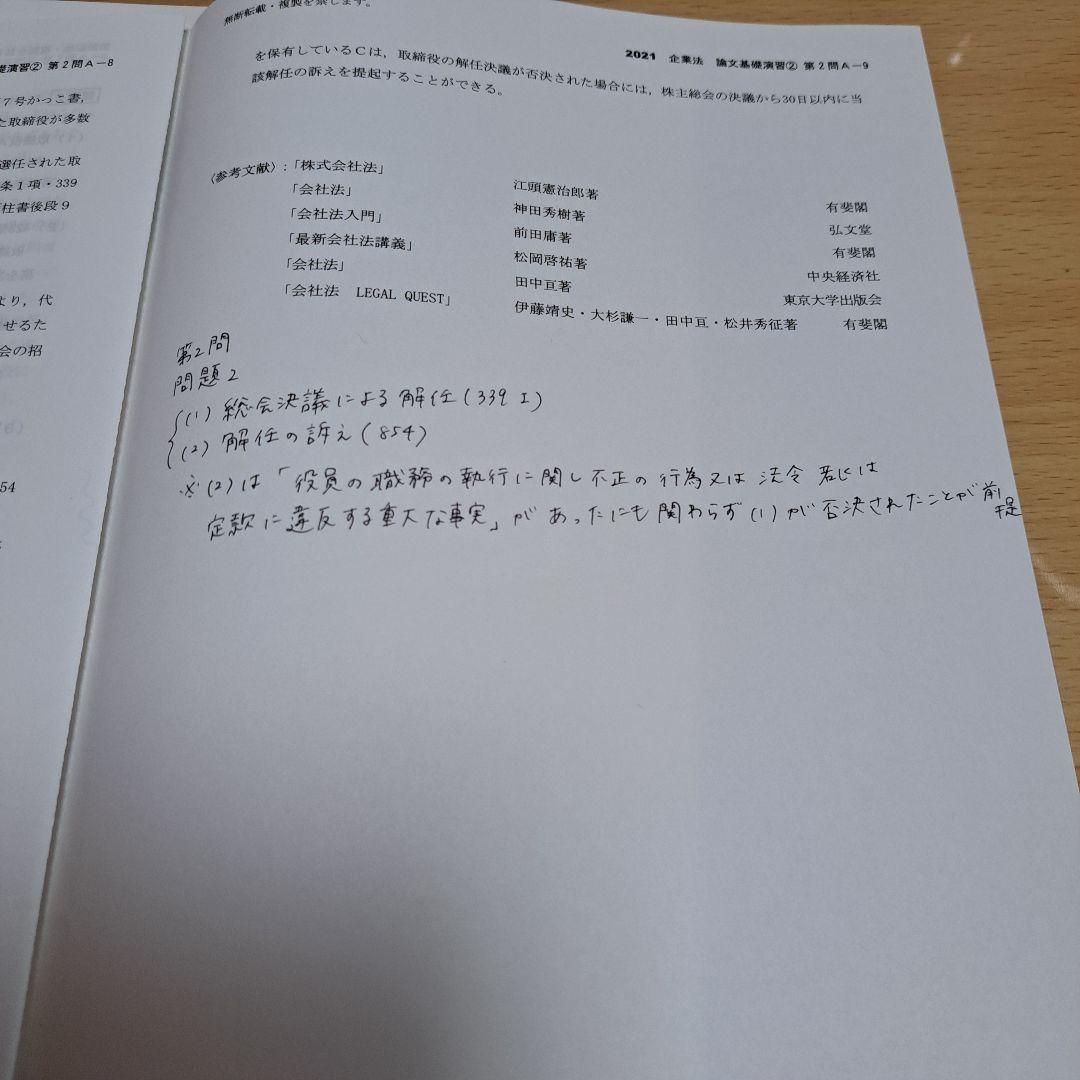 礎演習② 第2問A-8
7号かっこ書,
た取締役が多数
選任された取
条1項・339
柱書後段9
より,代
させるた
会の招
54
無断転載・複製を禁じます。
2021 企業法 論文基礎演習② 第2問A-9
を保有しているCは,取締役の解任決議が否決された場合には,株主総会の決議から30日以内に当
該解任の訴えを提起することができる。
〈参考文献〉:「株式会社法」 江頭憲治郎著 有斐閣
「会社法」 神田秀樹著 弘文堂
「会社法入門」 前田庸著 有斐閣
「最新会社法講義」 松岡啓祐著 中央経済社
「会社法」 田中亘著 東京大学出版会
「会社法 LEGAL QUEST」 伊藤靖史・大杉謙一・田中亘・松井秀征著 有斐閣
第2問
問題2
(1) 総会決議による解任(339 I)
(2) 解任の訴え(854)
※(2)は「役員の職務の執行に関し不正の行為又は法令若しくは
定款に違反する重大な事実」があったにも関わらず(1)が否決されたことが前提